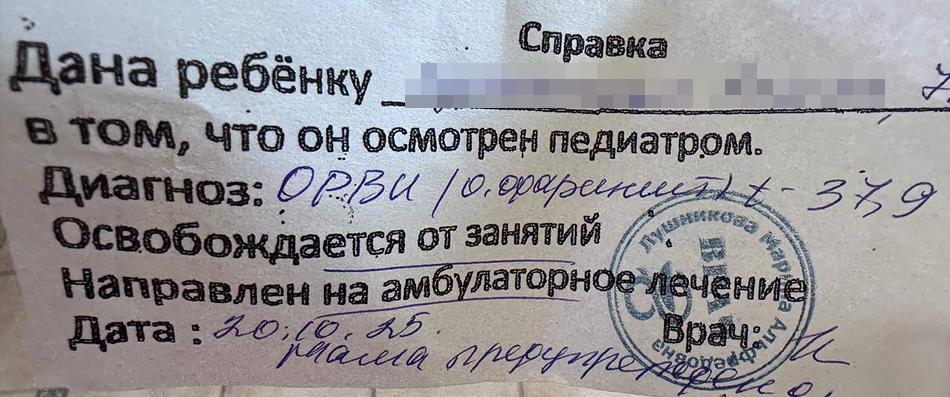 Справка
Дана ребёнку 7
в том, что он осмотрен педиатром.
Диагноз: ОРВИ /о. фарингит/ t - 37,9
Освобождается от занятий
Направлен на амбулаторное лечение
Дата : 20.10.25. Врач:
мама предупреждена.
Лушникова Мария Альфредовна
ВРАЧ